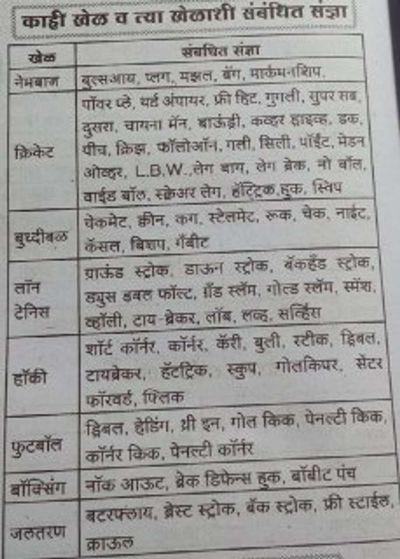 काही खेळ व त्या खेळाशी संबंधित संज्ञा
खेळ संबधित संज्ञा
नेमबाज बुल्सआय, प्लग, मझल, बॅग, मार्कमनशिप,
क्रिकेट पॉवर प्ले, थर्ड अंपायर, फ्री हिट, गुगली, सुपर सब,
दुसरा, चायना मॅन, बाऊंड्री, कव्हर ड्राइव्ह, डक,
पीच, क्रिझ, फॉलोऑन, गली, सिली, पॉईंट, मेडन
ओव्हर, L.B.W., लेग बाय, लेग ब्रेक, नो बॉल,
वाईड बॉल, स्क्वेअर लेग, हॅट्ट्रिक, हुक, स्विप
बुध्दीबळ चेकमेट, क्वीन, कग, स्टेलमेट, रूक, चेक, नाईट,
कॅसल, बिशप, गॅंबीट
लॉन टेनिस ग्राऊंड स्ट्रोक, डाऊन स्ट्रोक, बॅकहॅंड स्ट्रोक,
ड्युस डबल फॉल्ट, ग्रॅंड स्लॅम, गोल्ड स्लॅम, स्मॅश,
व्हॉली, टाय-ब्रेकर, लॉब, लव्ह, सर्व्हिस
हॉकी शॉर्ट कॉर्नर, कॉर्नर, कॅरी, बुली, स्टीक, ड्रिबल,
टायब्रेकर, हॅटट्रिक, स्कुप, गोलकिपर, सेंटर
फॉरवर्ड, फ्लिक
फुटबॉल ड्रिबल, हेडिंग, थ्री इन, गोल किक, पेनल्टी किक,
कॉर्नर किक, पेनल्टी कॉर्नर
बॉक्सिंग नॉक आऊट, ब्रेक डिफेन्स हुक, बॉबीट पंच
जलतरण बटरफ्लाय, ब्रेस्ट स्ट्रोक, बॅक स्ट्रोक, फ्री स्टाईल,
क्राऊल